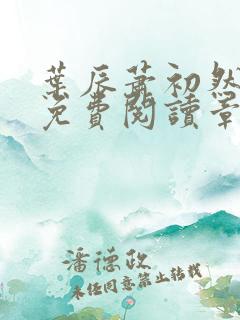 葉辰蕭初然
免費閱讀章
潘德政
未經同意禁止轉載